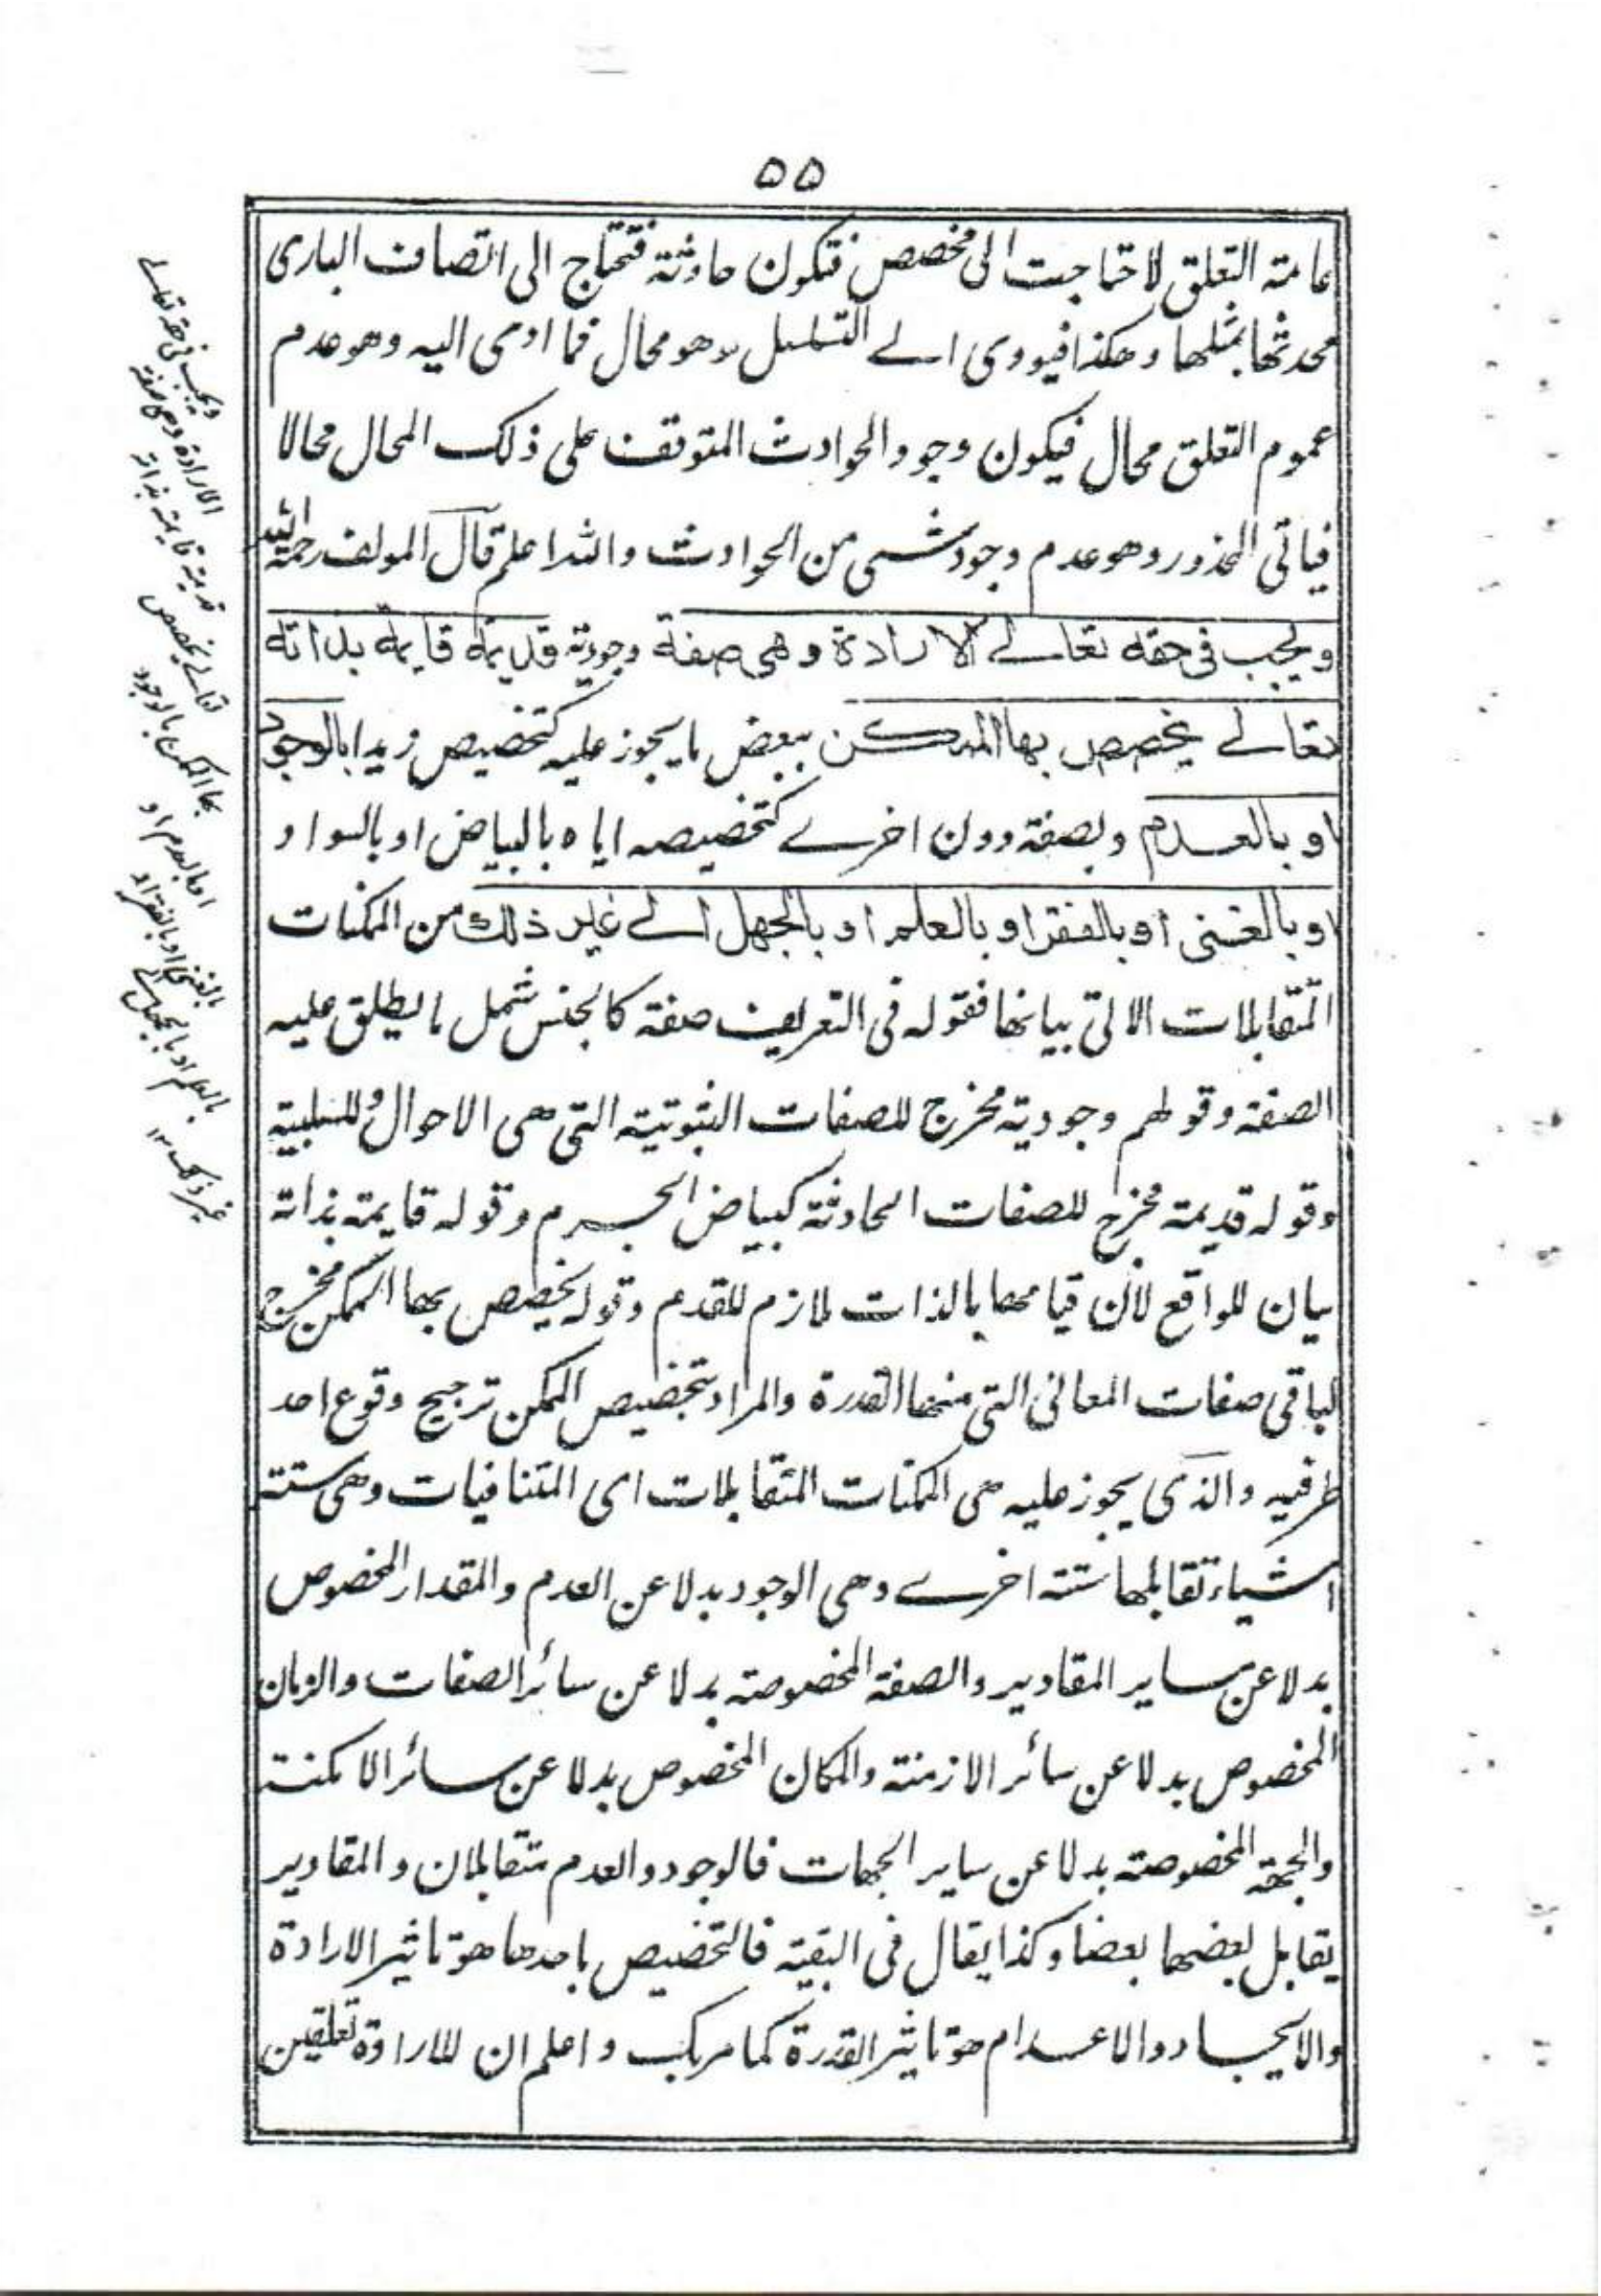 ٥٥
عامة التعلق لاحتاجت الى مخصص فتكون حادثة فتحتاج الى اتصاف البارى
محدثها بمثلها وهكذا فيودى الے التسلسل وهو محال فما ادى اليه وهو عدم
عموم التعلق محال فيكون وجود الحوادث المتوقف على ذلك المحال محالا
فياتى المحذور وهو عدم وجود شىء من الحوادث والله اعلم قال المولف رحمة الله
ويجب فى حقه تعالے الارادة وهى صفة وجودية قديمة قايمة بذاته
تعالے يخصص بها الممكن ببعض ما يجوز عليه كتخصيص زيد ا بالوجود
او بالعدم وبصفة دون اخرے كتخصيصه اياه بالبياض او بالسواد
او بالغنى او بالفقر او بالعلم او بالجهل الے غير ذلك من الممكنات
المتقابلات الاتى بيانها فقوله فى التعريف صفة كالجنس شمل ما يطلق عليه
الصفة وقولهم وجودية مخرج للصفات الثبوتية التى هى الاحوال وللسلبية
وقوله قديمة مخرج للصفات الحادثة كبياض الجرم وقوله قايمة بذاته
بيان للواقع لأن قيامها بالذات لازم للقدم وقوله يخصص بها الممكن مخرج
لباقى صفات المعانى التى منها القدرة والمراد بتخصيص الممكن ترجيح وقوع احد
طرفيه والذى يجوز عليه هى الممكنات المتقابلات اى المتنافيات وهى ستة
اشياء تقابلها ستة اخرے وهى الوجود بدلا عن العدم والمقدار المخصوص
بدلا عن ساير المقادير والصفة المخصوصة بدلا عن سائر الصفات والزمان
المخصوص بدلا عن سائر الازمنة والمكان المخصوص بدلا عن سائر الامكنة
والجهة المخصوصة بدلا عن ساير الجهات فالوجود والعدم متقابلان والمقادير
يقابل بعضها بعضا وكذا يقال فى البقية فالتخصيص باحدها هو تاثير الارادة
والايجاد والاعدام هو تاثير القدرة كما مر بك واعلم ان للارادة تعلقين
ويجب فى حقه تعالے
الارادة وهى صفة
قديمة قايمة بذاته
تعالے يخصص
بها الممكن بالوجود
او بالعدم او
بالغنى او بالفقر او
بالعلم او بالجهل الے
غير ذلك ١٢